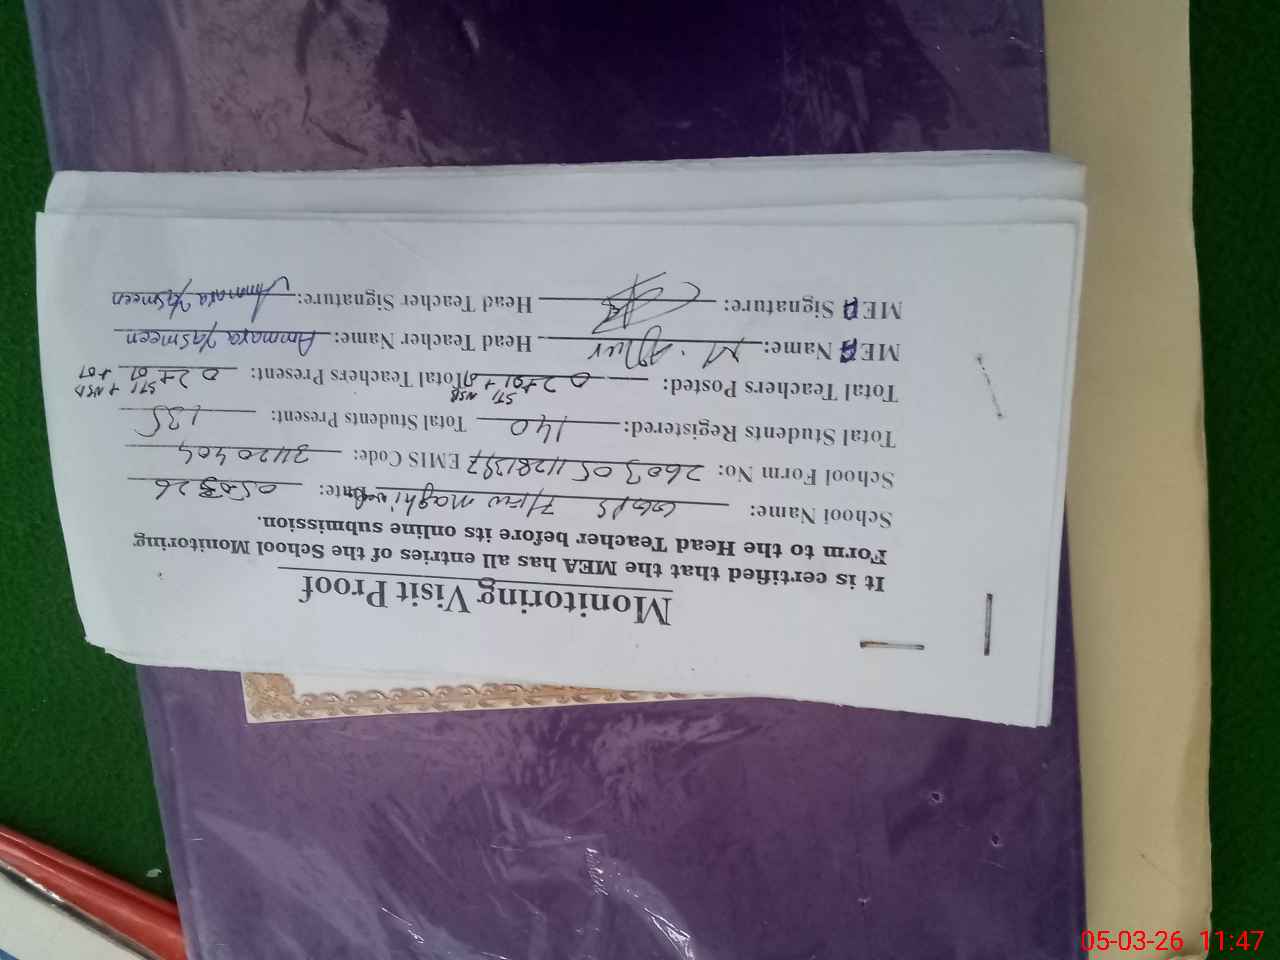 Monitoring Visit Proof
It is certified that the MEA has all entries of the School Monitoring
Form to the Head Teacher before its online submission.
School Name: GGPS 7/FW maghi Date: 05 03 26
School Form No: 26030511281397 EMIS Code: 31120404
Total Students Registered: 140 Total Students Present: 135
Total Teachers Posted: 02+01+01 STI NSB Total Teachers Present: 02+01+01 STI + NSB
MEA Name: M. Head Teacher Name: Ammara Yasmeen
MEA Signature: Head Teacher Signature: Ammara Yasmeen
05-03-26 11:47